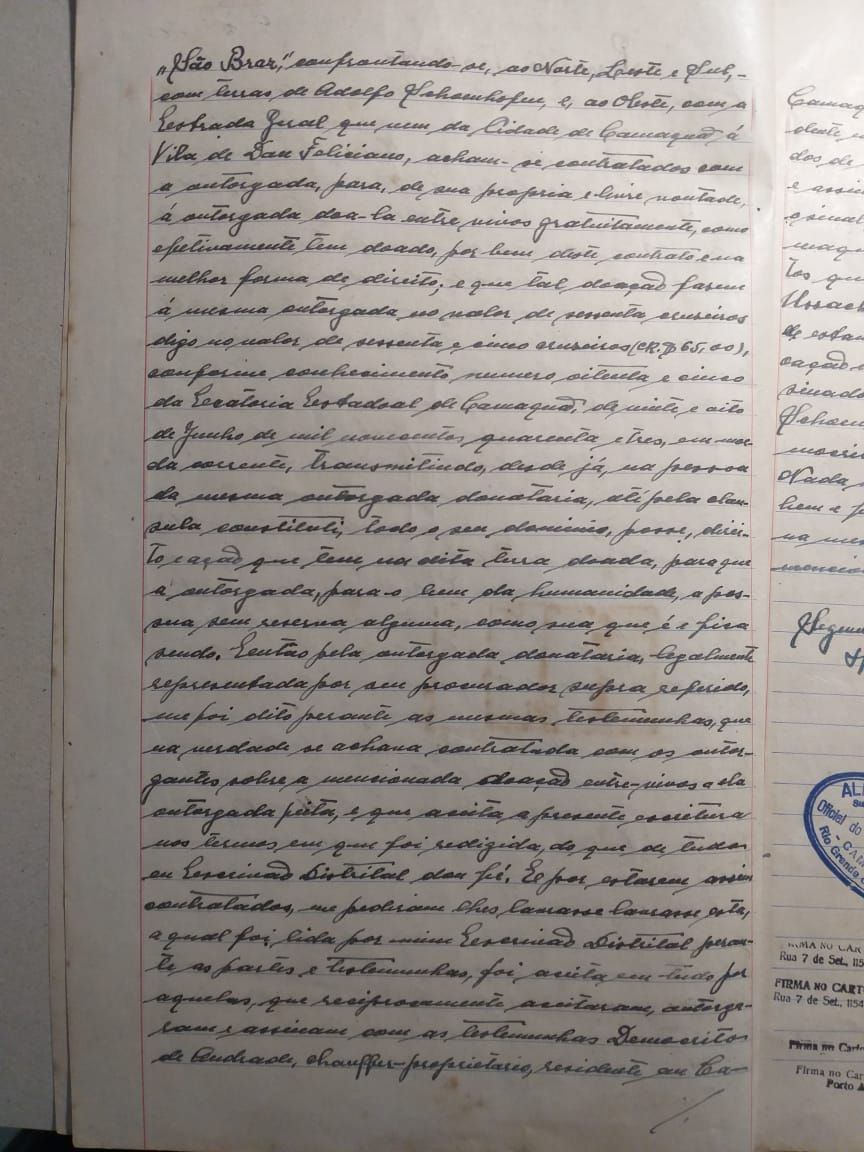 "São Braz", confrontando-se, ao Norte, Leste e Sul,-
com terras de Adolfo Schoenhofen, e, ao Oéste, com a
Estrada Geral que vem da Cidade de Camaquã á
Vila de Dom Feliciano, acham-se contratados com
a outorgada, para, de sua propria e livre vontade,
á outorgada doa-la entre vivos gratuitamente, como
efetivamente tem doado, por bem deste contrato e na
melhor forma de direito; e que tal doação fazem
á mesma outorgada no valor de sessenta cruzeiros
digo no valor de sessenta e cinco cruzeiros (CR.$ 65,00),
conforme conhecimento numero oitenta e cinco
da Exatoria Estadoal de Camaquã, de vinte e oito
de Junho de mil novecentos quarenta e tres, em moe-
da corrente, transmitindo, desde já, na pessoa
da mesma outorgada donataria, até pela clau-
sula constituti, todo o seu dominio, posse, direi-
to e ação que tem na dita terra doada, para que
a outorgada, para o bem da humanidade, a pos-
sua sem reserva alguma, como sua que é e fica
sendo. Então pela outorgada donataria, legalmente
representada por seu procurador supra referido,
me foi dito perante as mesmas testemunhas, que
na verdade se achava contratada com os outor-
gantes sobre a mencionada doação entre-vivos a ela
outorgada feita, e que aceita a presente escritura
nos termos em que foi redigida, do que de tudo
eu Escrivão Distrital dou fé. E por estarem assim
contratados, me pediram lhes lavrasse lavrasse esta,
a qual foi lida por mim Escrivão Distrital peran-
te as partes e testemunhas, foi aceita em tudo por
aquelas, que reciprocamente aceitaram, outorga-
ram e assinam com as testemunhas Democrito
de Andrade, chauffer-proprietario, residente em Ca-
./.
Camaq
dos de
e assi
maqu
tos qu
de estan
cação
sinado
Schoen
Nada
bem e
na mes
Segun
Oficial do
- CAM
Rio Grande
FIRMA NO CAR
Rua 7 de Set., 115
FIRMA NO CARTO
Rua 7 de Set., 1154
Firma no Carto
Firma no Car
Porto A